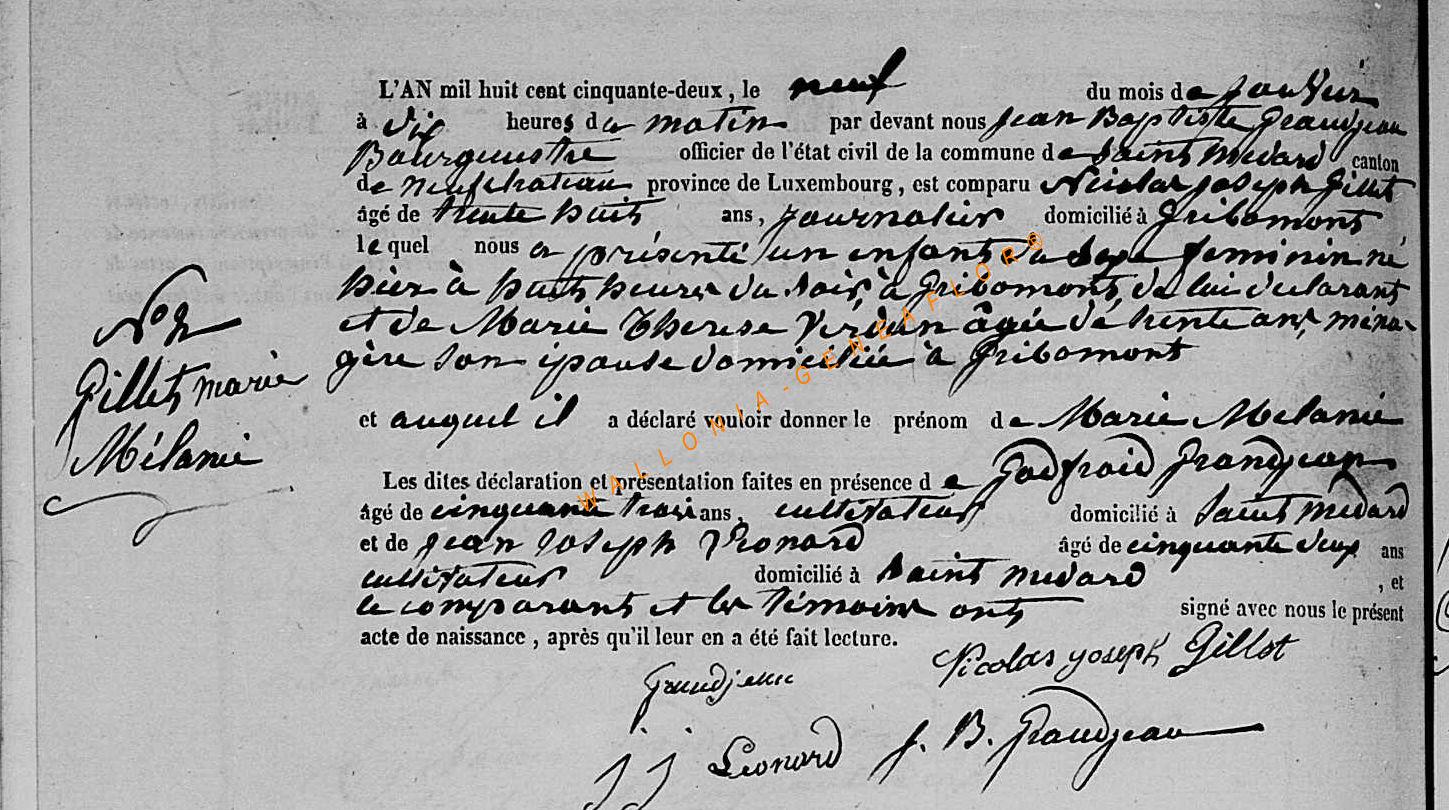 L'AN mil huit cent cinquante-deux, le neuf du mois de janvier
à dix heures du matin par devant nous Jean Baptiste Grandjean
Bourgmestre officier de l'état civil de la commune de Saint Medard canton
de neufchateau province de Luxembourg, est comparu Nicolas joseph Gillet
âgé de trente huit ans, journalier domicilié à Gribomont
lequel nous a présenté un enfant du sexe feminin né
hier à huit heures du soir, à Gribomont, de lui declarant
et de Marie Therese Verdun âgée de trente ans, ména-
gère son épouse domiciliée à Gribomont
No 2
Gillet marie
Mélanie
et auquel il a déclaré vouloir donner le prénom de Marie Mélanie
Les dites déclaration et présentation faites en présence de Godfroid Grandjean
âgé de cinquante trois ans, cultivateur domicilié à Saint Médard
et de Jean Joseph Léonard âgé de cinquante deux ans
cultivateur domicilié à Saint Medard , et
le comparant et les témoins ont signé avec nous le présent
acte de naissance, après qu'il leur en a été fait lecture.
Grandjean Nicolas joseph Gillet
j j Leonard J. B. Grandjean
WALLONIA-GENEAFLOR©